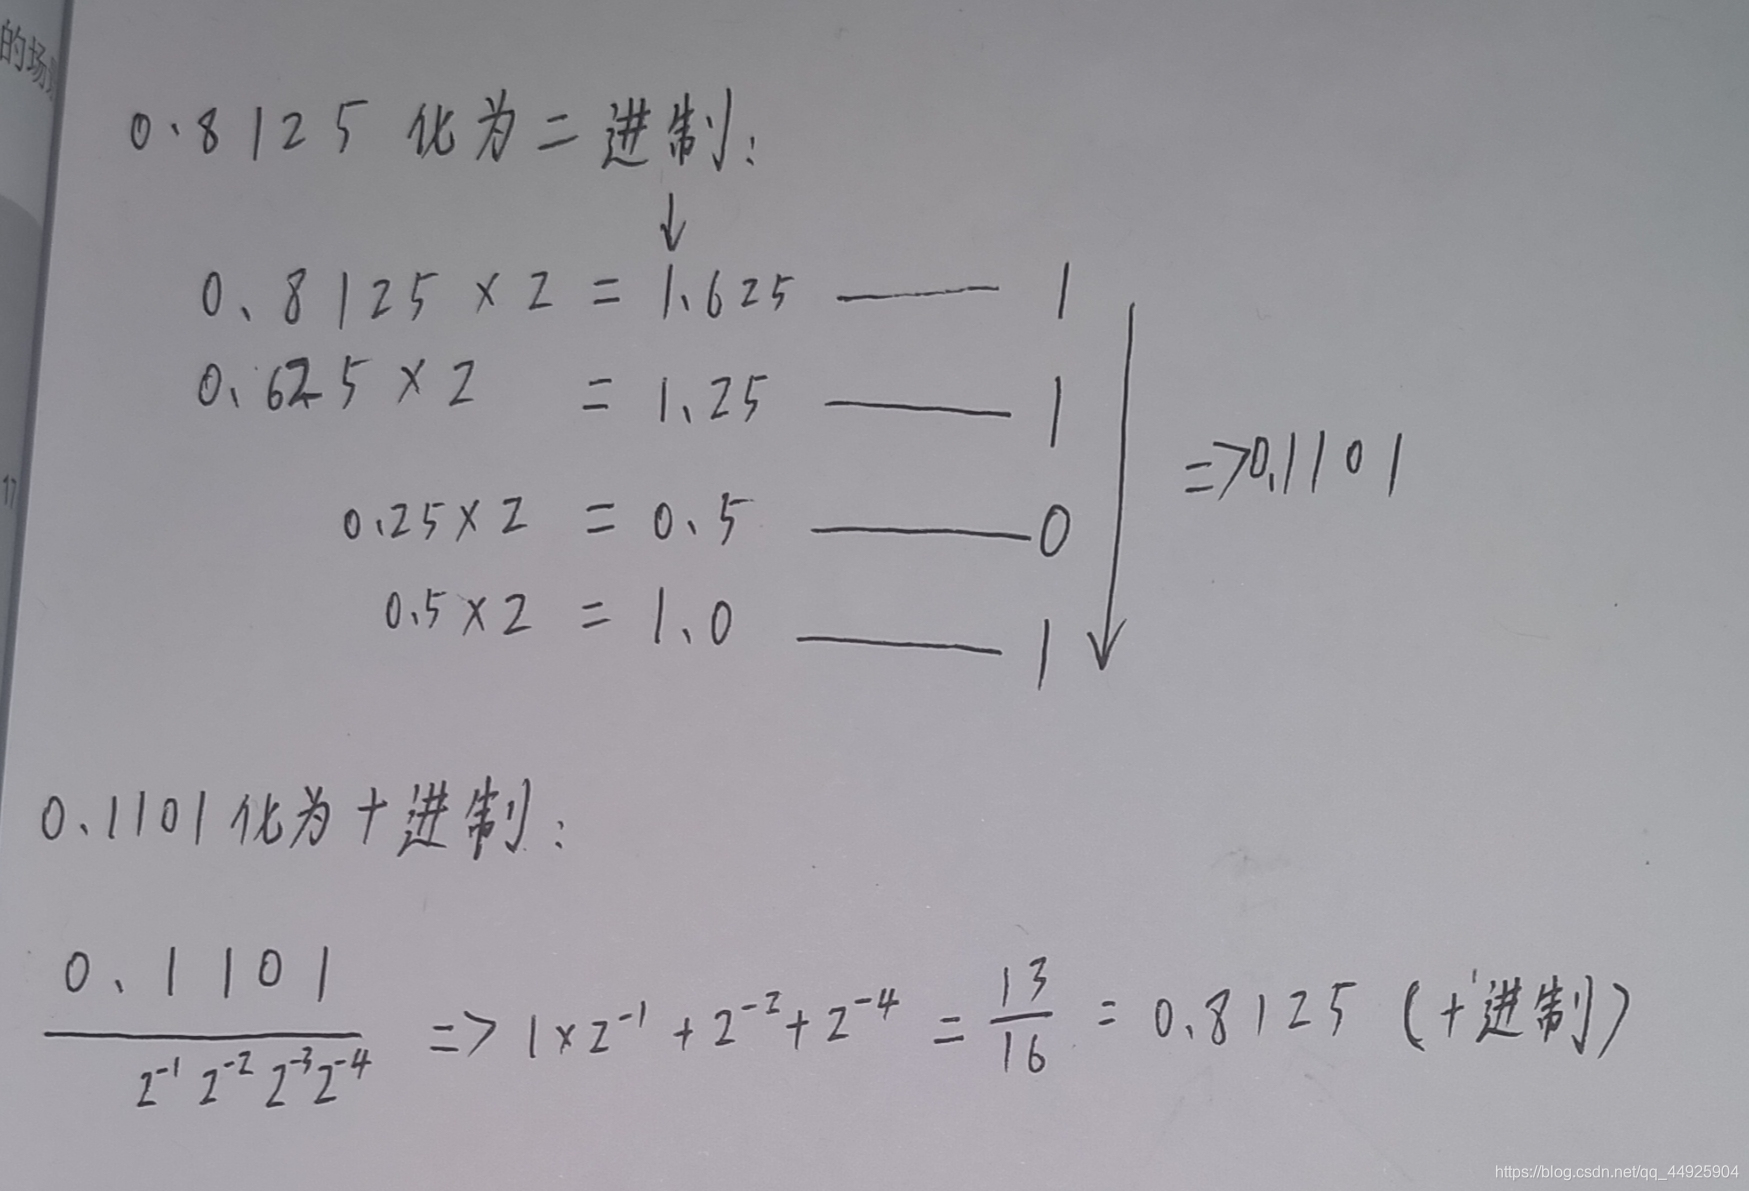 的场
0.8125 化为二进制:
↓
0.8125 × 2 = 1.625 —— 1
0.625 × 2 = 1.25 —— 1
=>0.1101
17
0.25 × 2 = 0.5 —— 0
0.5 × 2 = 1.0 —— 1
0.1101 化为十进制:
0.1101
2⁻¹ 2⁻² 2⁻³ 2⁻⁴ => 1×2⁻¹ + 2⁻² + 2⁻⁴ = 13/16 = 0.8125 (十进制)
https://blog.csdn.net/qq_44925904